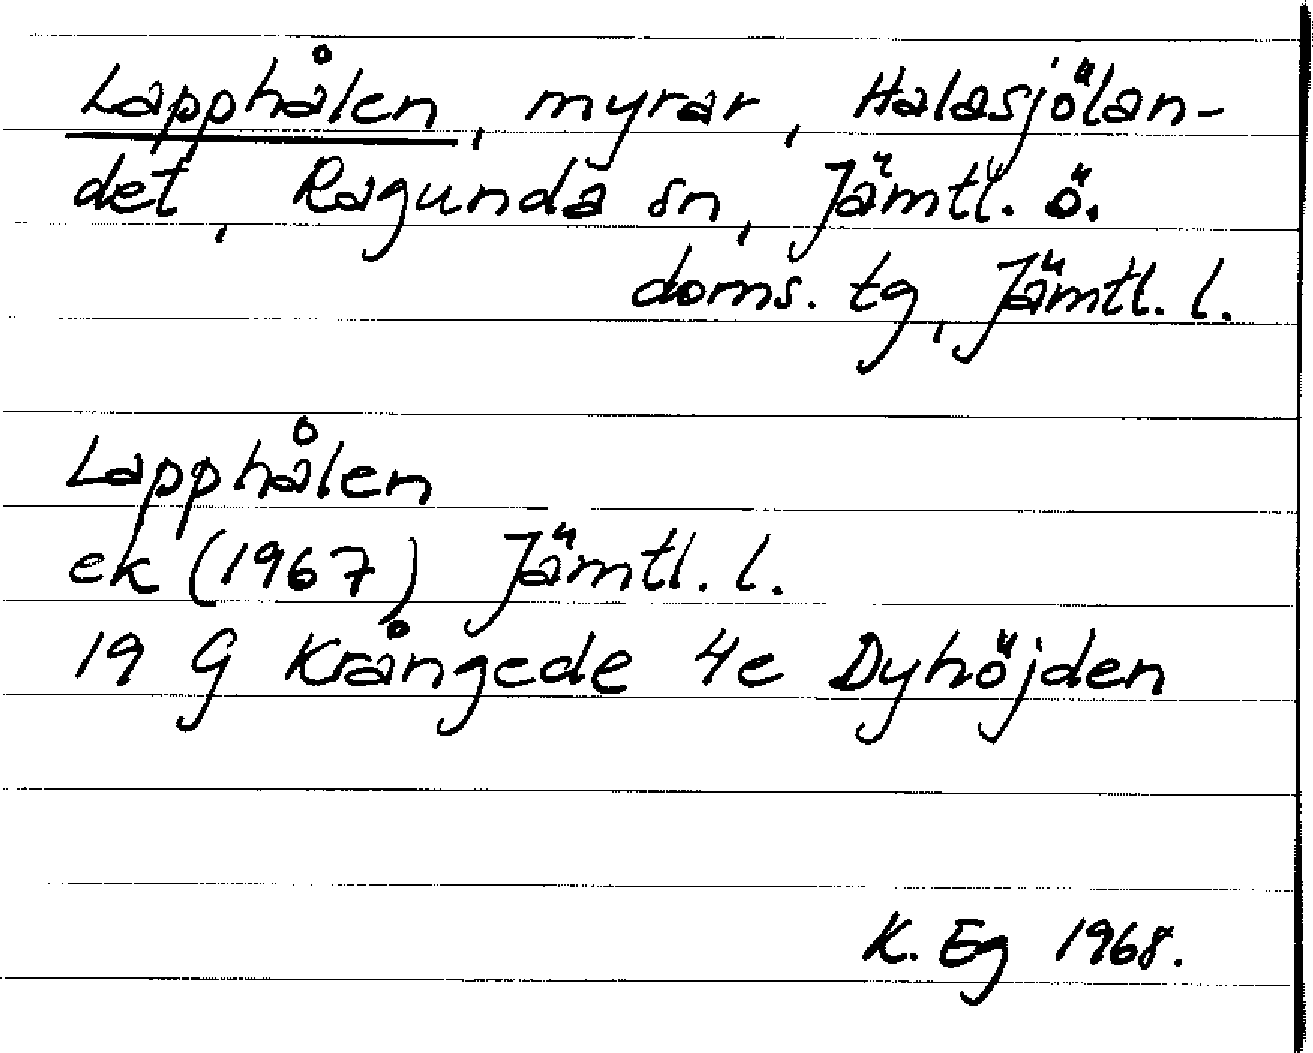 Lapphålen, myrar, Halasjölan-
det, Ragunda sn, Jämtl. ö.
doms. tg, Jämtl. l.
Lapphålen
ek (1967) Jämtl. l.
19 G Krångede 4e Dyhöjden
K. Eg 1968.